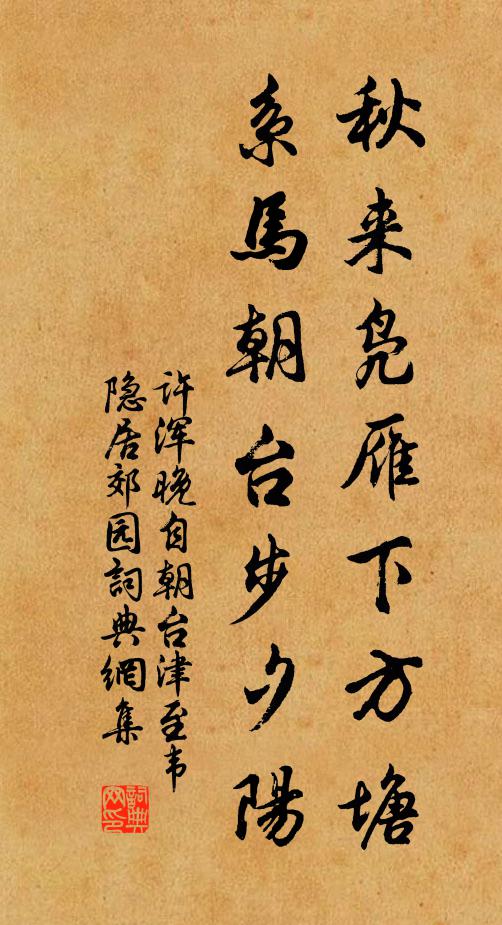 秋来凫雁下方塘
系馬朝台步夕陽
许浑晚自朝台津至韦
隐居郊园詞典網集
詞典
网印